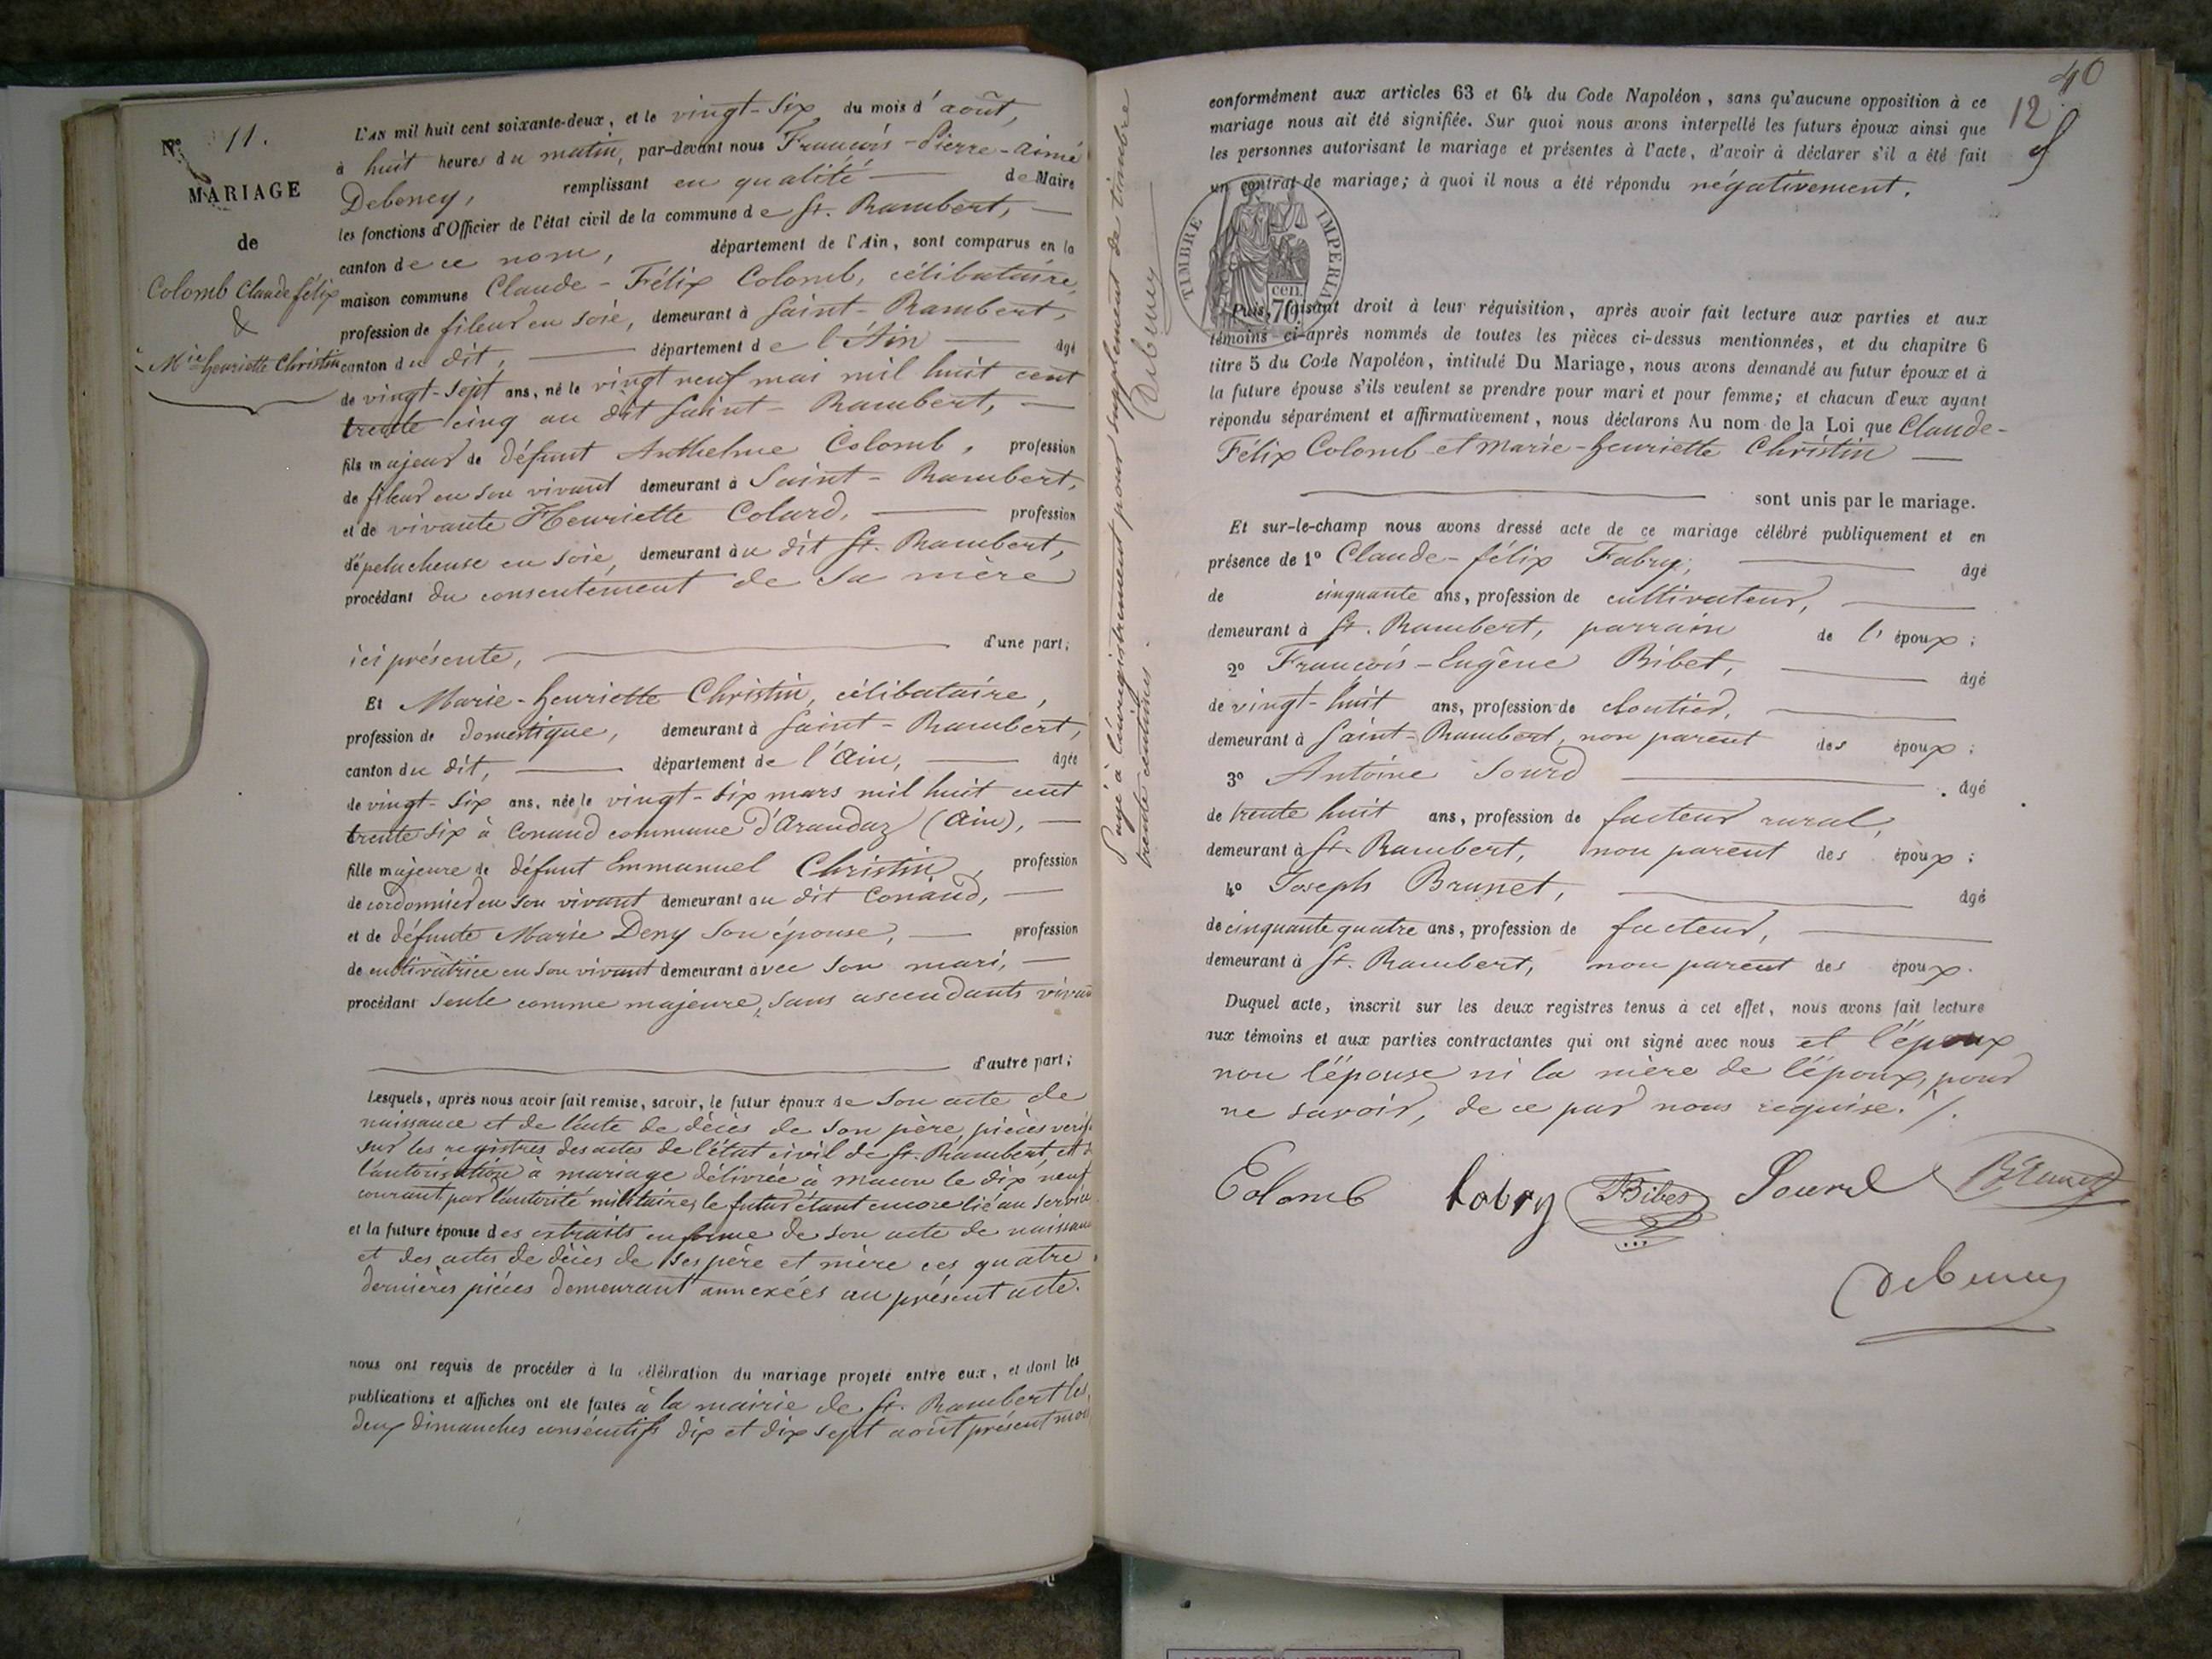 N° 11.
MARIAGE
de
Colomb Claude félix
&
Mie henriette Christin
L'AN mil huit cent soixante-deux, et le vingt-six, du mois d'août,
à huit heures du matin, par-devant nous François-Pierre-Aimé
Debeney, remplissant en qualité de Maire
les fonctions d'Officier de l'état civil de la commune de St. Rambert,
canton de ce nom, département de l'Ain, sont comparus en la
maison commune Claude-Félix Colomb, célibataire,
profession de fileur en soie, demeurant à Saint-Rambert,
canton du dit, département de l'Ain âgé
de vingt-sept ans, né le vingt neuf mai mil huit cent
trente cinq au dit Saint-Rambert,
fils majeur de défunt Anthelme Colomb, profession
de fileur en son vivant demeurant à Saint-Rambert,
et de vivante Henriette Colard, profession
d'épelucheuse en soie, demeurant au dit St. Rambert,
procédant du consentement de sa mère
ici présente, d'une part;
Et Marie-henriette Christin, célibataire,
profession de domestique, demeurant à Saint-Rambert,
canton du dit, département de l'Ain, âgée
de vingt-six ans, née le vingt-six mars mil huit cent
trente six à Conand commune d'Arandaz (Ain),
fille majeure de défunt Emmanuel Christin, profession
de cordonnier en son vivant demeurant au dit Conand,
et de défunte Marie Deny son épouse, profession
de cultivatrice en son vivant demeurant avec son mari,
procédant seule comme majeure, sans ascendants vivan
d'autre part;
Lesquels, après nous avoir fait remise, savoir, le futur époux de son acte de
naissance et de l'acte de décès de son père, pièces vérif
sur les registres des actes de l'état civil de St. Rambert, et d
l'autorisation à mariage délivrée à macon le dix neuf
courant par l'autorité militaire, le futur étant encore lié au service
et la future épouse des extraits en forme de son acte de naissan
et des actes de décès de ses père et mère ces quatre
dernières pièces demeurant annexées au présent acte.
nous ont requis de procéder à la célébration du mariage projeté entre eux, et dont les
publications et affiches ont été faites à la mairie de St. Rambert les
deux dimanches consécutifs dix et dix sept août présent mois
Payé à l'enregistrement pour supplément de timbre
trente centimes.
Debeney
40
12
conformément aux articles 63 et 64 du Code Napoléon, sans qu'aucune opposition à ce
mariage nous ait été signifiée. Sur quoi nous avons interpellé les futurs époux ainsi que
les personnes autorisant le mariage et présentes à l'acte, d'avoir à déclarer s'il a été fait
un contrat de mariage; à quoi il nous a été répondu négativement.
TIMBRE IMPERIAL
cen.
70
Puis, faisant droit à leur réquisition, après avoir fait lecture aux parties et aux
témoins ci-après nommés de toutes les pièces ci-dessus mentionnées, et du chapitre 6
titre 5 du Code Napoléon, intitulé Du Mariage, nous avons demandé au futur époux et à
la future épouse s'ils veulent se prendre pour mari et pour femme; et chacun d'eux ayant
répondu séparément et affirmativement, nous déclarons Au nom de la Loi que Claude-
Félix Colomb et Marie-henriette Christin
sont unis par le mariage.
Et sur-le-champ nous avons dressé acte de ce mariage célébré publiquement et en
présence de 1° Claude-félix Fabry, âgé
de cinquante ans, profession de cultivateur,
demeurant à St. Rambert, parrain de l'époux;
2° François-Eugène Bibet, âgé
de vingt-huit ans, profession de cloutier,
demeurant à Saint-Rambert, non parent des époux;
3° Antoine Sourd âgé
de trente huit ans, profession de facteur rural,
demeurant à St. Rambert, non parent des époux;
4° Joseph Brunet, âgé
de cinquante quatre ans, profession de facteur,
demeurant à St. Rambert, non parent des époux.
Duquel acte, inscrit sur les deux registres tenus à cet effet, nous avons fait lecture
aux témoins et aux parties contractantes qui ont signé avec nous et l'époux
non l'épouse ni la mère de l'époux, pour
ne savoir, de ce par nous requise./.
Colomb fabry Bibet Sourd Brunet
Debeney